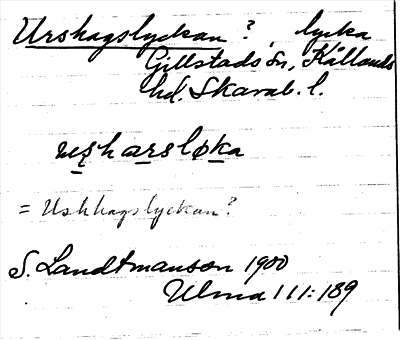 Urshagslyckan?, lycka
Gillstads sn, Kållands
hd. Skarab. l.
uʂharsløka
= Ushhagslyckan?
S. Landtmanson 1900
Ulma 111:189